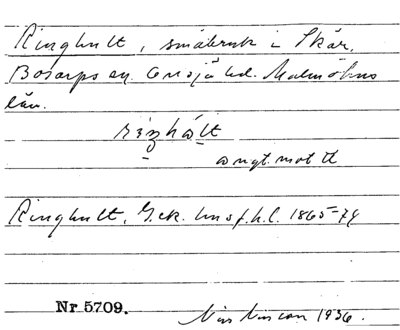 Ringhult, småbruk i Skår,
Bosarps sn. Onsjö hd. Malmöhus
län.
riŋhɷlt
ɷ ngt. mot ɵ
Ringhult, G.ek. hns f.h.l. 1865-74
Nr 5709.
1936.